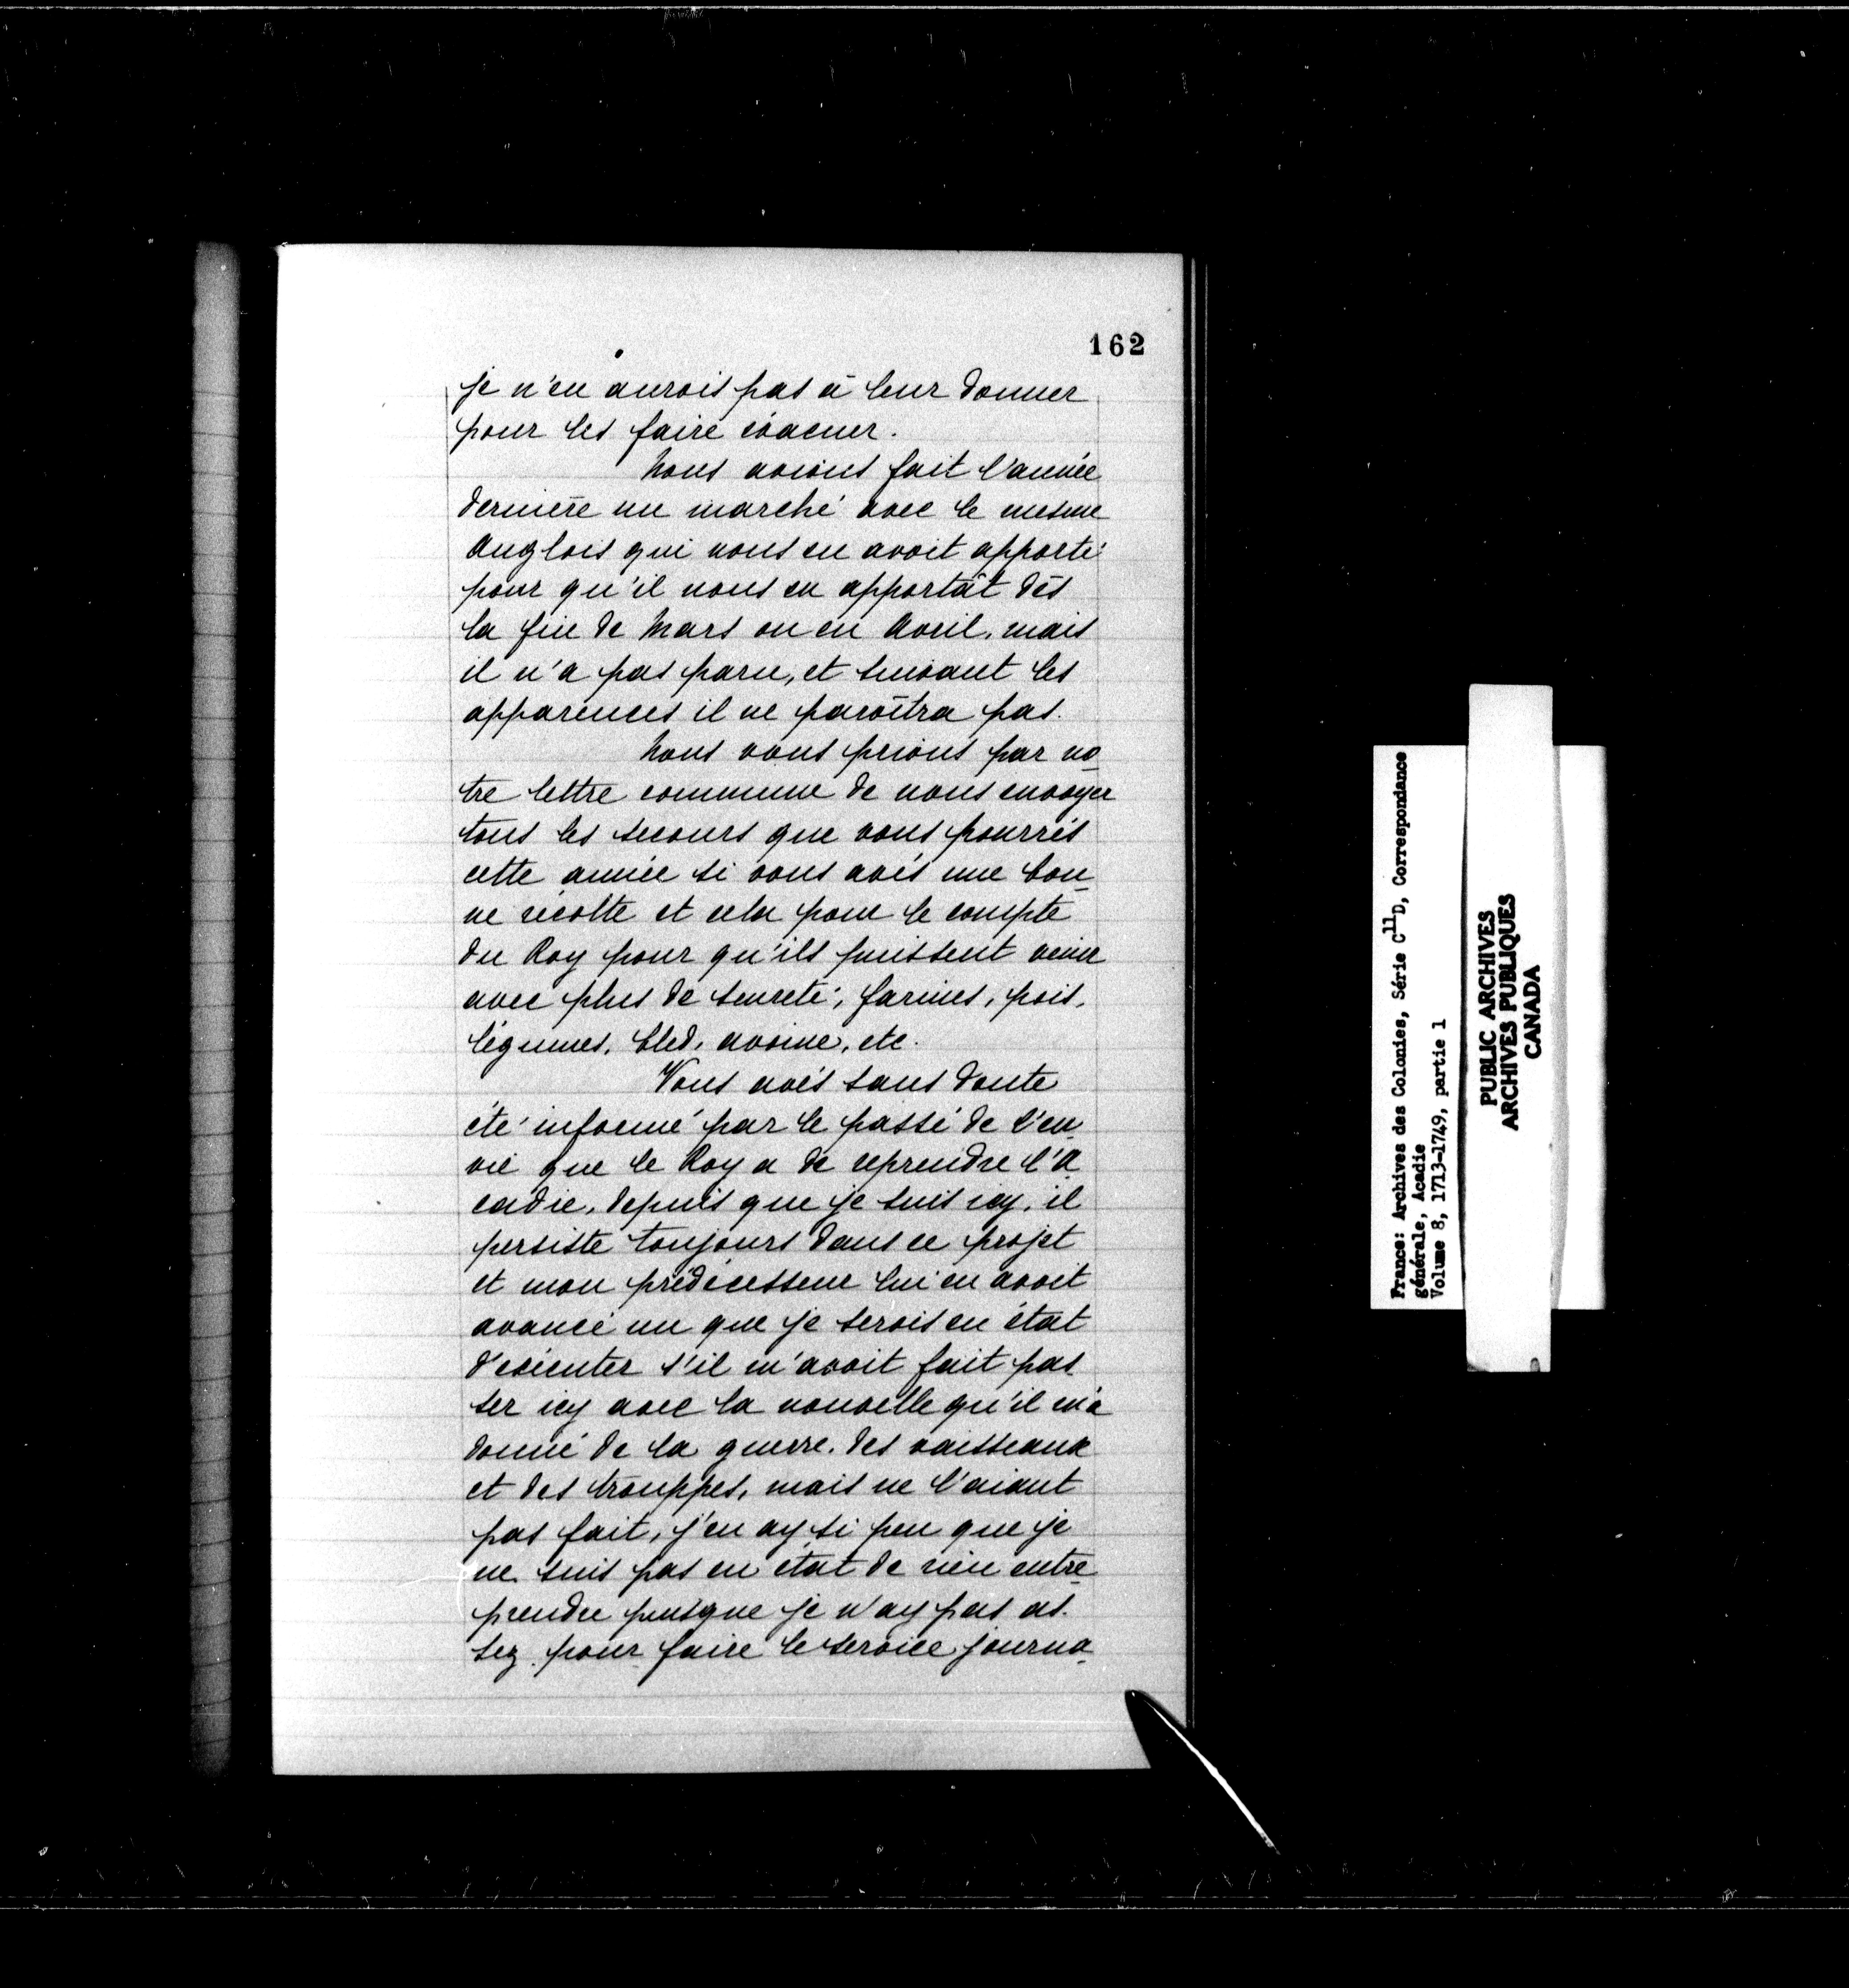 162
je n'en aurois pas à leur donner
pour les faire évacuer.
Nous avions fait l'année
dernière un marché avec le mesme
Anglois qui nous en avoit apporté
pour qu'il nous en apportât dès
la fin de Mars ou en Avril, mais
il n'a pas paru, et suivant les
apparences il ne paroîtra pas.
Nous vous prions par no
tre lettre commune de nous envoyer
tous les secours que vous pourrés
cette année si vous avés une bon
ne récolte et cela pour le compte
du Roy pour qu'ils puissent venir
avec plus de seureté, farines, pois,
légumes, bled, avoine, etc.
Vous avés sans doute
été informé par le passé de l'en
vie que le Roy a de reprendre l'A
cadie, depuis que je suis icy, il
persiste toujours dans ce projet
et mon prédécesseur lui en avoit
avancé un que je serois en état
d'exécuter s'il m'avoit fait pas
ser icy avec la nouvelle qu'il m'a
donné de la guerre, des vaisseaux
et des trouppes, mais ne l'aiant
pas fait, j'en ay si peu que je
ne suis pas en état de rien entre
prendre pusque je n'ay pas as
sez pour faire le service journa
France: Archives des Colonies, Série C11D, Correspondance
générale, Acadie
Volume 8, 1713-1749, partie 1
PUBLIC ARCHIVES
ARCHIVES PUBLIQUES
CANADA